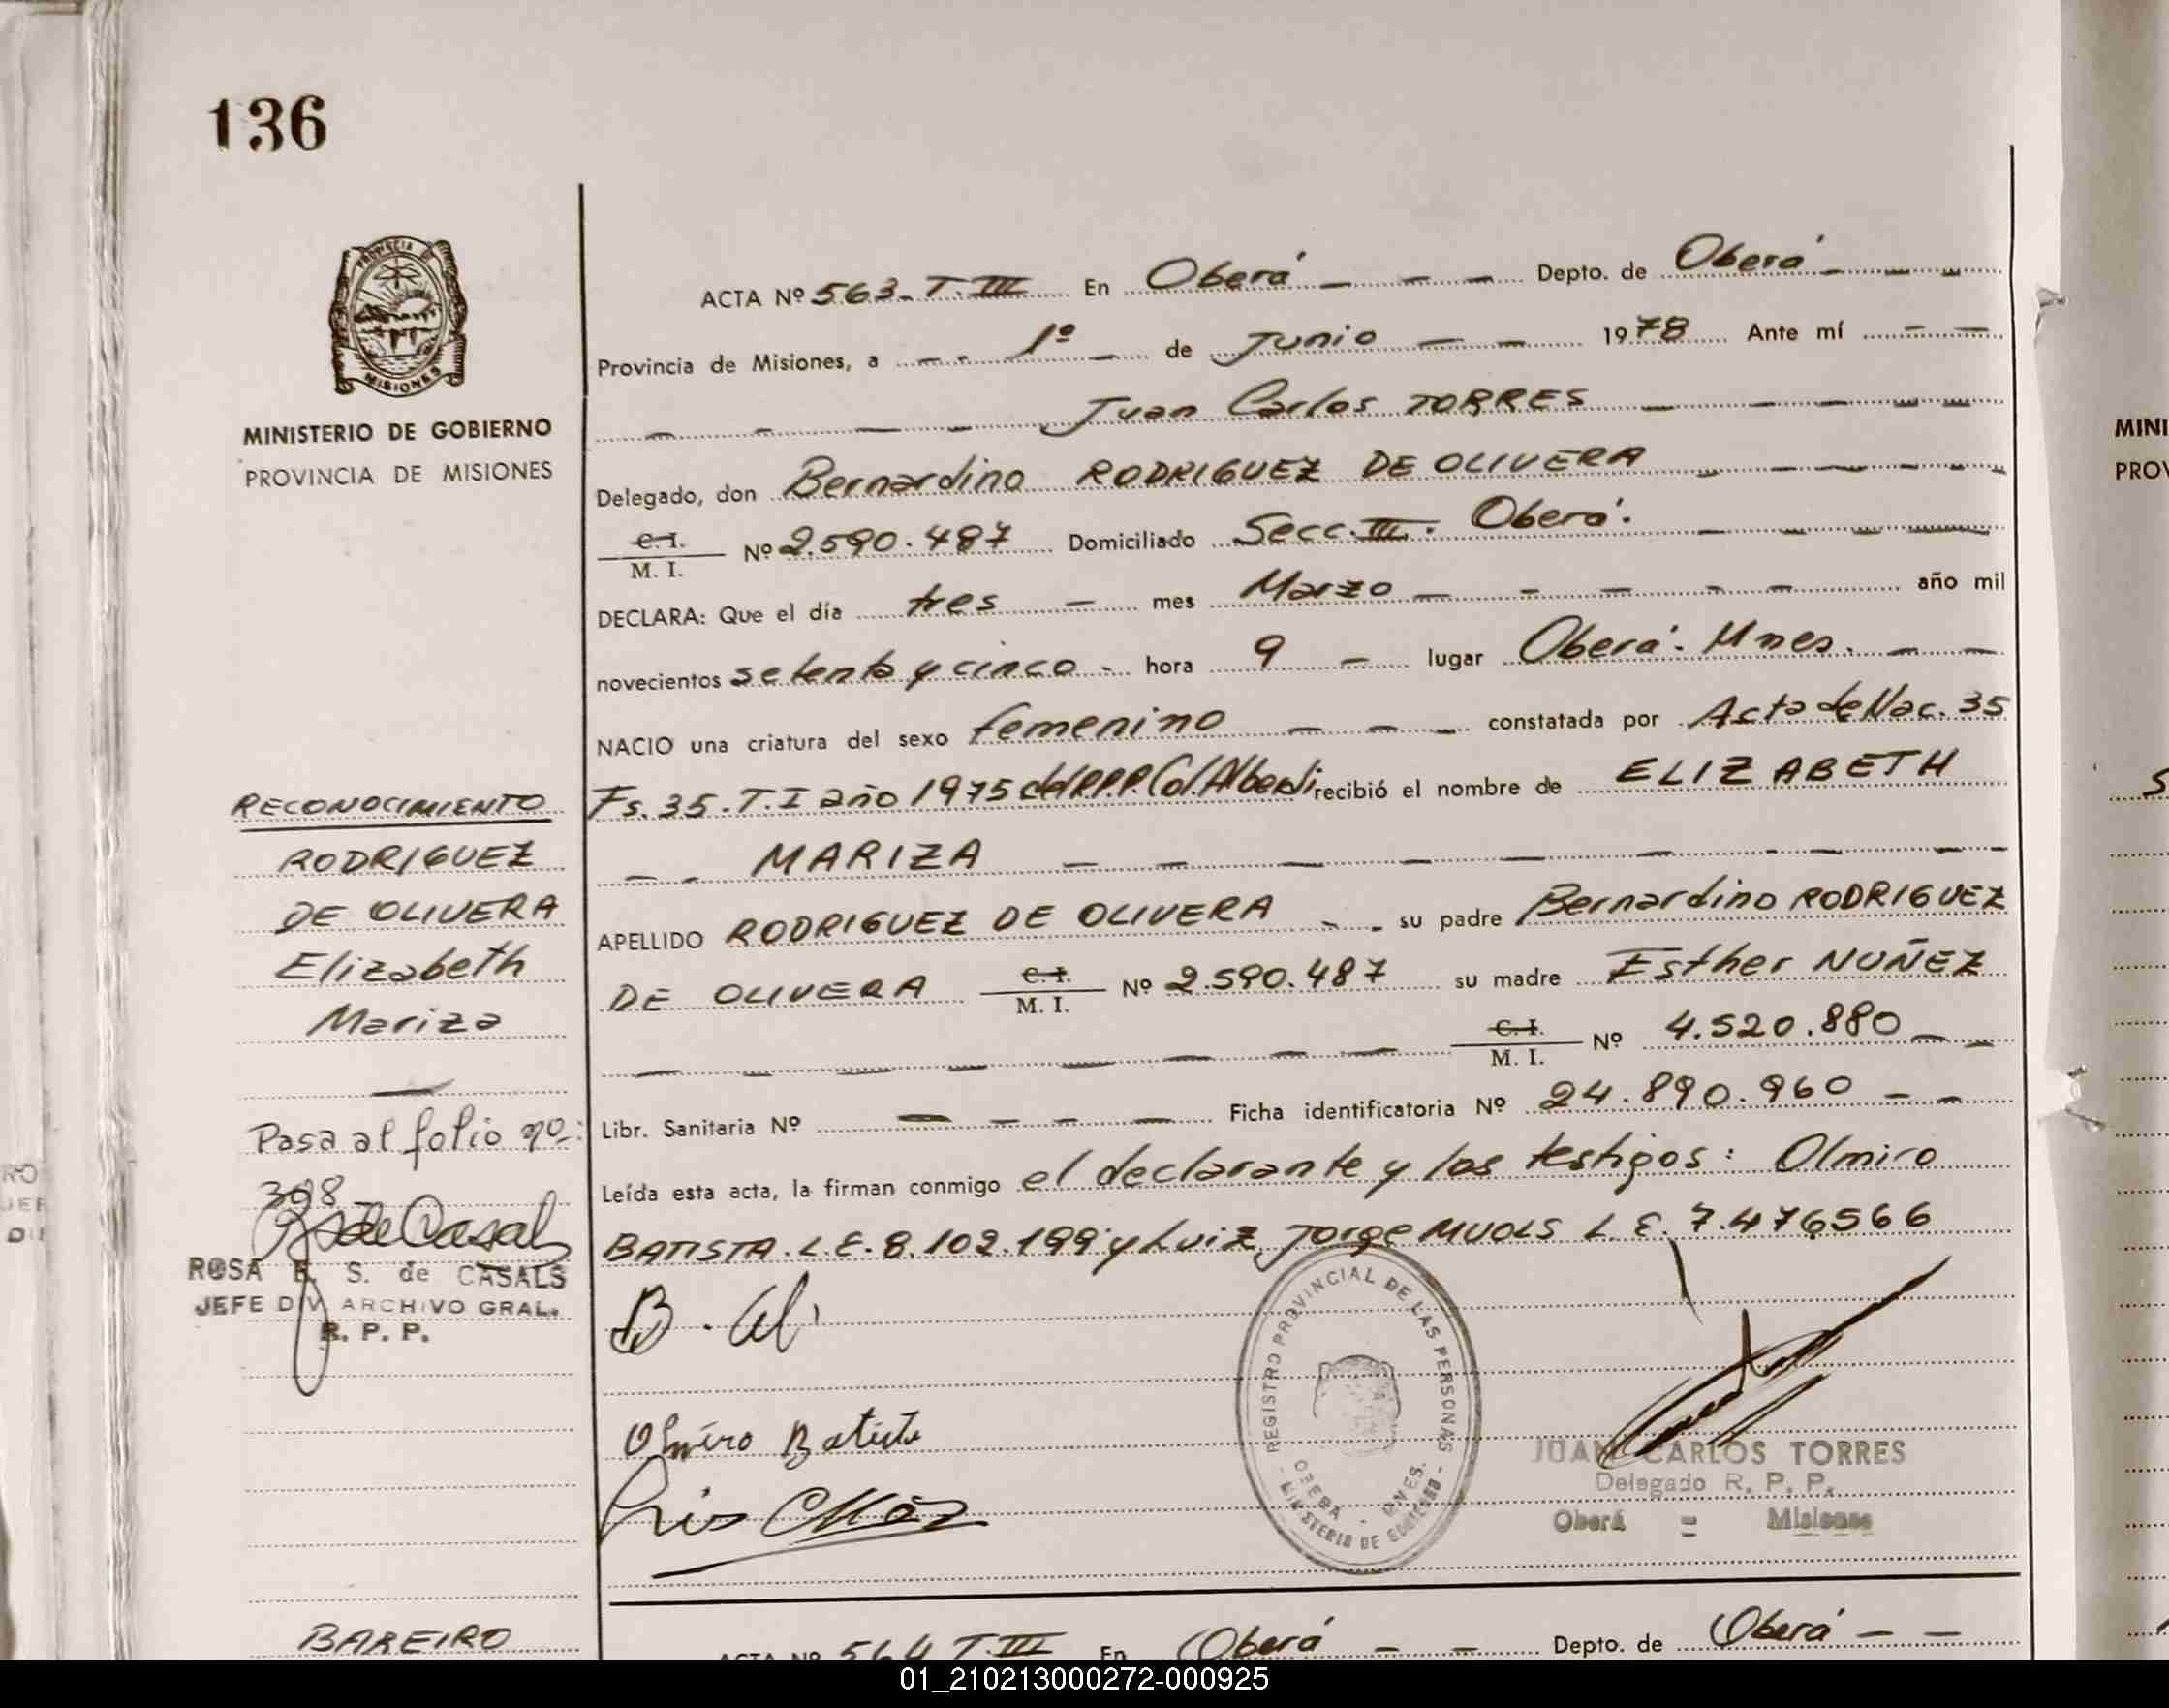 136
PROVINCIA DE
MISIONES
MINISTERIO DE GOBIERNO
PROVINCIA DE MISIONES
RECONOCIMIENTO
RODRIGUEZ
DE OLIVERA
Elizabeth
Mariza
Pasa al folio nº:
398
RS de Casals
ROSA E. S. de CASALS
JEFE DIV. ARCHIVO GRAL.
R. P. P.
BAREIRO
ACTA Nº 563-T.III En Oberá Depto. de Oberá
Provincia de Misiones, a 1º de Junio 1978 Ante mí
Juan Carlos TORRES
Delegado, don Bernardino RODRIGUEZ DE OLIVERA
C.I. / M. I. Nº 2.590.487 Domiciliado Secc. III. Oberá.
DECLARA: Que el día tres mes Marzo año mil
novecientos setenta y cinco hora 9 lugar Oberá. Mnes.
NACIO una criatura del sexo femenino constatada por Acta de Nac. 35
Fs. 35. T. I año 1975 del R.P.P. Col. Alberdi recibió el nombre de ELIZABETH
MARIZA
APELLIDO RODRIGUEZ DE OLIVERA su padre Bernardino RODRIGUEZ
DE OLIVERA C.I. / M. I. Nº 2.590.487 su madre Esther NUÑEZ
C.I. / M. I. Nº 4.520.880
Libr. Sanitaria Nº Ficha identificatoria Nº 24.890.960
Leída esta acta, la firman conmigo el declarante y los testigos: Olmiro
BATISTA. L.E. 8.102.199 y Luiz Jorge MUOLS L.E. 7.476566
Olmiro Batista
REGISTRO PROVINCIAL DE LAS PERSONAS
OBERA - MNES.
MINISTERIO DE GOBIERNO
JUAN CARLOS TORRES
Delegado R. P. P.
Oberá - Misiones
ACTA Nº 564 T.III En Oberá Depto. de Oberá
MINI
PROV
01_210213000272-000925